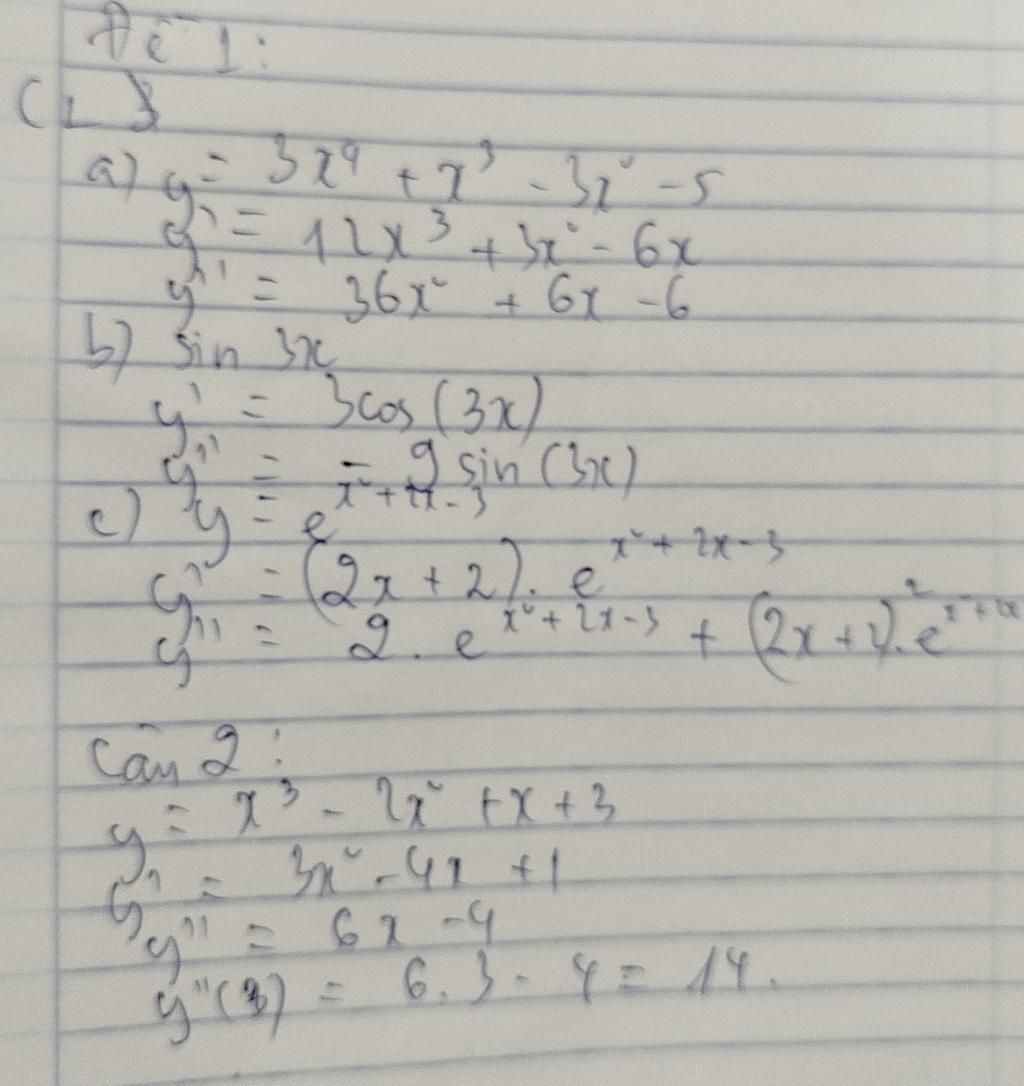 Đề 1:
C1
a) y = 3x⁴ + x³ - 3x² - 5
y' = 12x³ + 3x² - 6x
y'' = 36x² + 6x - 6
b) sin 3x
y' = 3cos(3x)
y'' = - 9 sin(3x)
c) y = e^{x² + 2x - 3}
y' = (2x + 2). e^{x² + 2x - 3}
y'' = 2. e^{x² + 2x - 3} + (2x + 2)². e^{x² + 2x}
Câu 2:
y = x³ - 2x² + x + 3
y' = 3x² - 4x + 1
y'' = 6x - 4
y''(3) = 6.3 - 4 = 14.